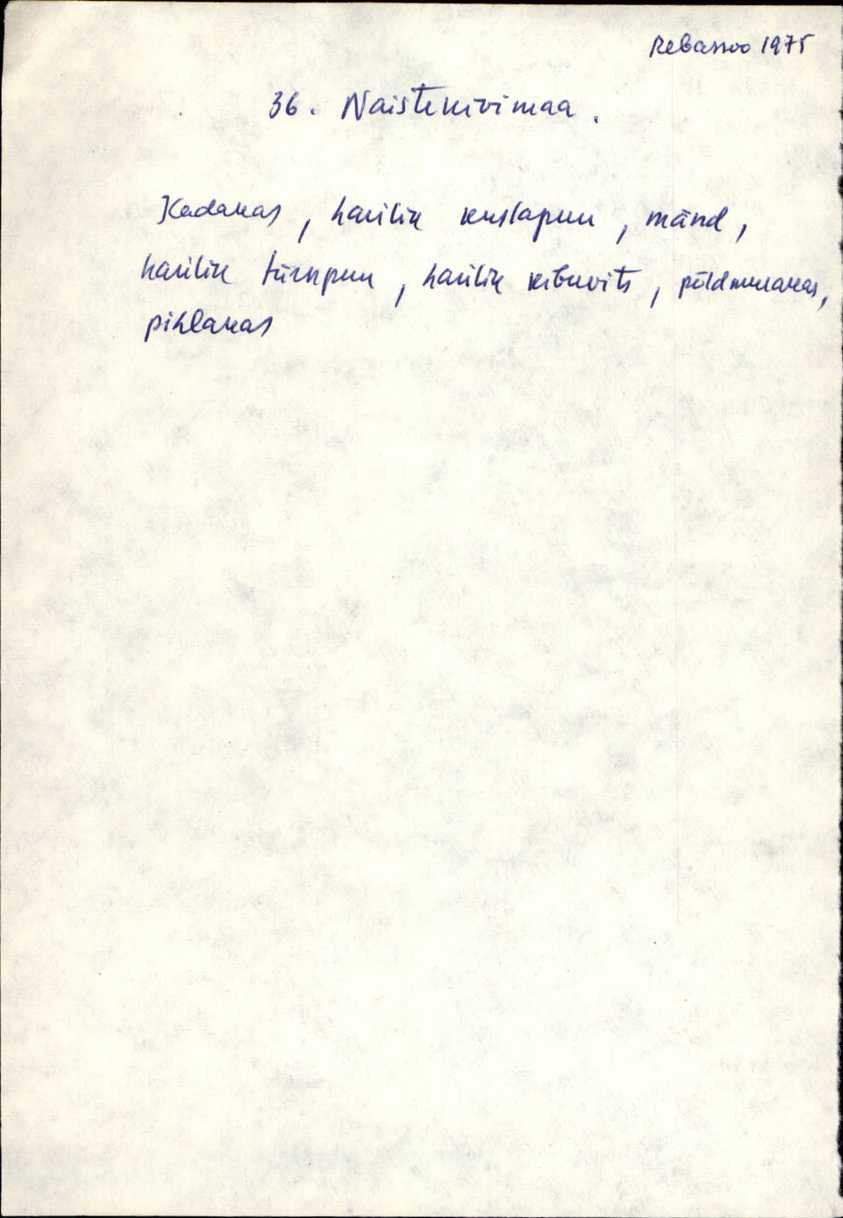 Rebassoo 1975
36. Naistekivimaa.
Kadakas, harilik kuslapuu, mänd,
harilik türnpuu, harilik kibuvits, põldmurakas,
pihlakas